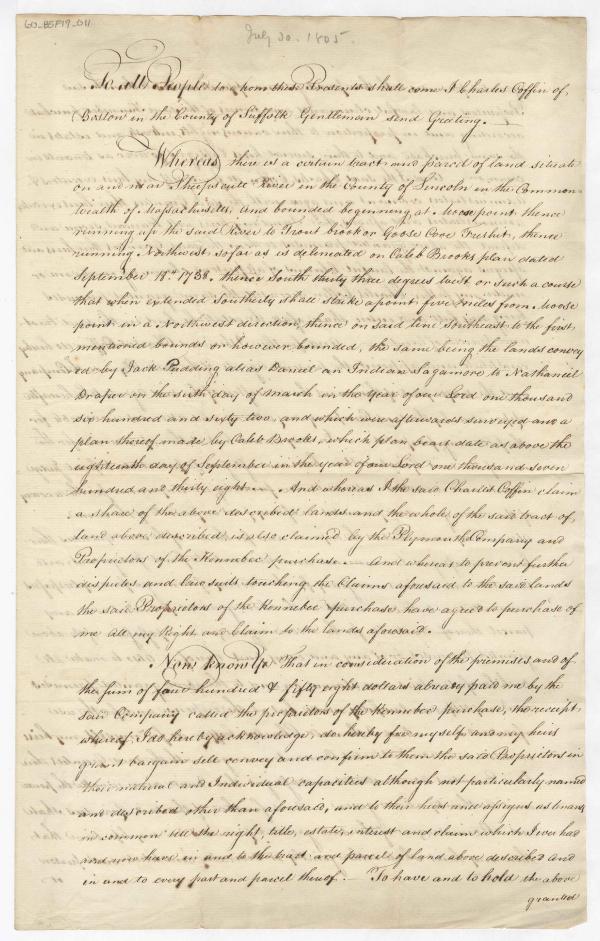 60_BSF19_011
July 30. 1805.
To all People to whom these Presents shall come I Charles Coffin of,
Boston in the County of Suffolk Gentleman send Greeting.
Whereas there is a certain tract and parcel of land situate
on and near Sheepscutt River in the County of Lincoln in the Common
wealth of Massachusetts, and bounded beginning at Moose point thence
running up the said River to Trout brook or Goose Cove Freshit, thence
running Northwest so far as is delineated on Caleb Brooks plan dated
September 18th 1738. thence South thirty three degrees West or such a course
that when extended Southerly shall strike a point five miles from Moose
point in a Northwest direction, thence on said line Southeast to the first
mentioned bounds or however bounded, the same being the lands convey
ed by Jack Pudding alias Daniel an Indian Sagamore to Nathaniel
Draper on the sixth day of March in the Year of our Lord one thousand
six hundred and sixty two, and which were afterwards surveyed and a
plan thereof made by Caleb Brooks, which plan bears date as above the
eighteenth day of September in the year of our Lord one thousand seven
hundred and thirty eight.— And whereas I the said Charles Coffin claim
a share of the above described lands and the whole of the said tract of,
land above described is also claimed by the Plymouth Company and
Proprietors of the Kennebec purchase.— And whereas to prevent further
disputes and law suits touching the Claims aforesaid to the said lands
the said Proprietors of the Kennebec purchase have agreed to purchase of
me all my Right and Claim to the lands aforesaid.
Now know Ye That in consideration of the premises and of
the sum of four hundred & fifty eight dollars already paid me by the
said Company called the proprietors of the Kennebec purchase, the receipt
whereof I do hereby acknowledge, do hereby for myself and my heirs
grant bargain sell convey and confirm to them the said Proprietors in
their natural and Individual capacities although not particularly named
and described other than aforesaid, and to their heirs and assigns as tenants
in common all the right, title, estate, interest and claim which I ever had
and now have in and to the tract and parcel of land above described and
in and to every part and parcel thereof.— To have and to hold the above
granted